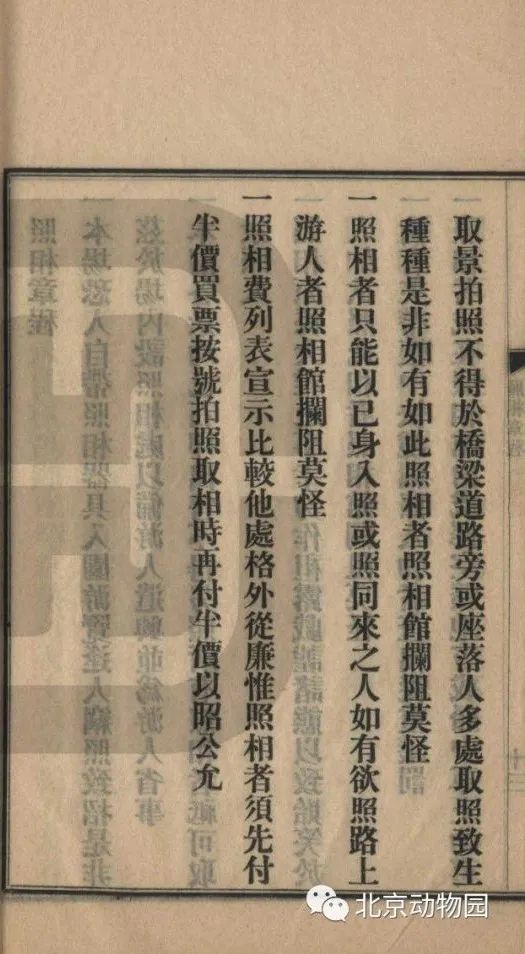 一取景拍照不得於橋梁道路旁或座落人多處取照致生
種種是非如有如此照相者照相館攔阻莫怪
一照相者只能以已身入照或照同來之人如有欲照路上
游人者照相館攔阻莫怪
一照相費列表宣示比較他處格外從廉惟照相者須先付
半價買票按號拍照取相時再付半價以昭公允
北京动物园